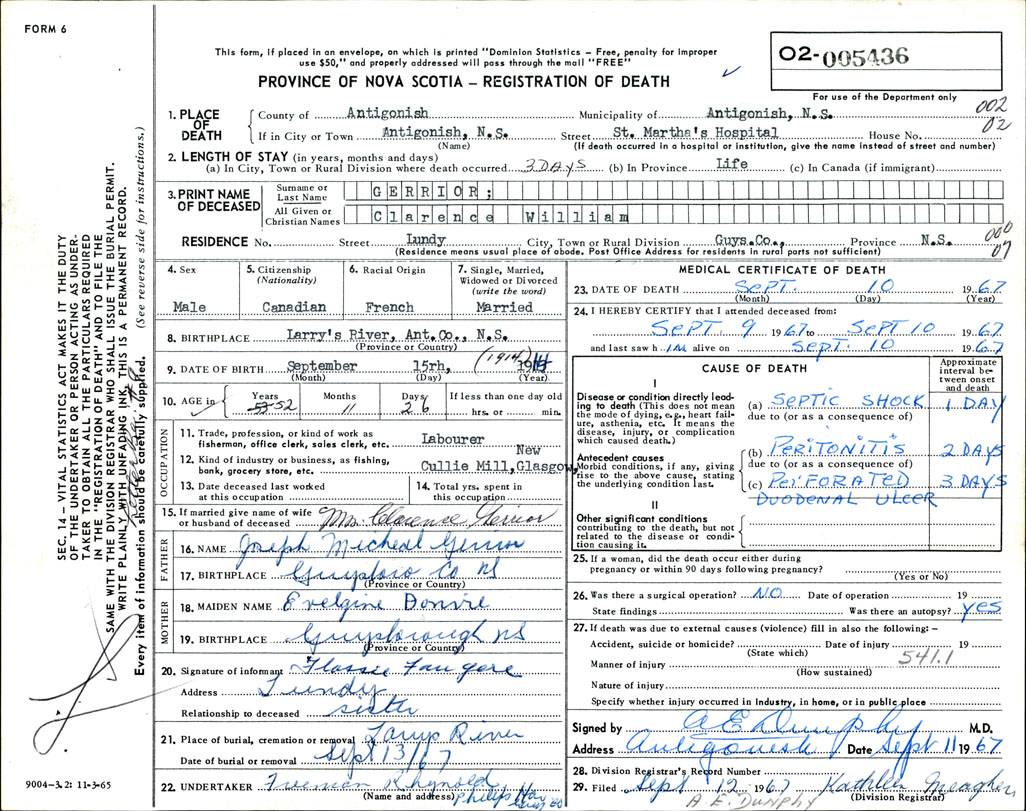 FORM 6
This form, if placed in an envelope, on which is printed "Dominion Statistics – Free, penalty for improper
use $50," and properly addressed will pass through the mail "FREE"
PROVINCE OF NOVA SCOTIA – REGISTRATION OF DEATH
02-005436
For use of the Department only
002
02
1. PLACE OF DEATH
County of Antigonish Municipality of Antigonish, N.S.
If in City or Town Antigonish, N.S. Street St. Martha's Hospital House No.
(Name) (If death occurred in a hospital or institution, give the name instead of street and number)
2. LENGTH OF STAY (in years, months and days)
(a) In City, Town or Rural Division where death occurred 3 DAYS (b) In Province Life (c) In Canada (if immigrant)
3. PRINT NAME OF DECEASED
Surname or Last Name GERRIOR;
All Given or Christian Names Clarence William
RESIDENCE No. Street Lundy City, Town or Rural Division Guys.Co., Province N.S.
000
07
(Residence means usual place of abode. Post Office Address for residents in rural parts not sufficient)
4. Sex
Male
5. Citizenship
(Nationality)
Canadian
6. Racial Origin
French
7. Single, Married,
Widowed or Divorced
(write the word)
Married
8. BIRTHPLACE Larry's River, Ant.Co., N.S.
(Province or Country)
9. DATE OF BIRTH September 15rh, 19 14 (1914)
(Month) (Day) (Year)
10. AGE in
Years Months Days If less than one day old
53 52 11 26 hrs. or min.
OCCUPATION
11. Trade, profession, or kind of work as
fisherman, office clerk, sales clerk, etc. Labourer
12. Kind of industry or business, as fishing,
bank, grocery store, etc. Cullie Mill, New Glasgow,
13. Date deceased last worked
at this occupation
14. Total yrs. spent in
this occupation
15. If married give name of wife
or husband of deceased Mrs. Clarence Gerrior
FATHER
16. NAME Joseph Micheal Gerrior
17. BIRTHPLACE Guysboro Co NS
(Province or Country)
MOTHER
18. MAIDEN NAME Evelgine
19. BIRTHPLACE Guysborough NS
(Province or Country)
20. Signature of informant Flossie
Address Lundy
Relationship to deceased sister
21. Place of burial, cremation or removal Larrys River
Date of burial or removal Sept 13/67
22. UNDERTAKER Freeman
(Name and address)
MEDICAL CERTIFICATE OF DEATH
23. DATE OF DEATH SEPT. 10 1967
(Month) (Day) (Year)
24. I HEREBY CERTIFY that I attended deceased from:
SEPT. 9 1967 to SEPT 10 1967
and last saw h IM alive on SEPT. 10 1967
CAUSE OF DEATH
Approximate
interval be-
tween onset
and death
I
Disease or condition directly lead-
ing to death (This does not mean
the mode of dying, e.g., heart fail-
ure, asthenia, etc. It means the
disease, injury, or complication
which caused death.)
(a) SEPTIC SHOCK 1 DAY
due to (or as a consequence of)
Antecedent causes
Morbid conditions, if any, giving
rise to the above cause, stating
the underlying condition last.
(b) PERITONITIS 2 DAYS
due to (or as a consequence of)
(c) PERFORATED 3 DAYS
DUODENAL ULCER
II
Other significant conditions
contributing to the death, but not
related to the disease or condi-
tion causing it.
25. If a woman, did the death occur either during
pregnancy or within 90 days following pregnancy?
(Yes or No)
26. Was there a surgical operation? NO Date of operation 19
State findings Was there an autopsy? YES
27. If death was due to external causes (violence) fill in also the following: –
Accident, suicide or homicide? Date of injury 19
(State which)
541.1
Manner of injury
(How sustained)
Nature of injury
Specify whether injury occurred in industry, in home, or in public place
Signed by A E Dunphy M.D.
Address Antigonish Date Sept 11 1967
28. Division Registrar's Record Number
29. Filed Sept 12 1967 Kathleen Meagher
(Division Registrar)
A. E. DUNPHY
SEC. 14 – VITAL STATISTICS ACT MAKES IT THE DUTY
OF THE UNDERTAKER OR PERSON ACTING AS UNDER-
TAKER TO OBTAIN ALL THE PARTICULARS REQUIRED
IN THE "REGISTRATION OF DEATH" AND TO FILE THE
SAME WITH THE DIVISION REGISTRAR WHO SHALL ISSUE THE BURIAL PERMIT.
WRITE PLAINLY WITH UNFADING INK, THIS IS A PERMANENT RECORD.
Every item of information should be carefully supplied. (See reverse side for instructions.)
9004-3,2: 11-3-65